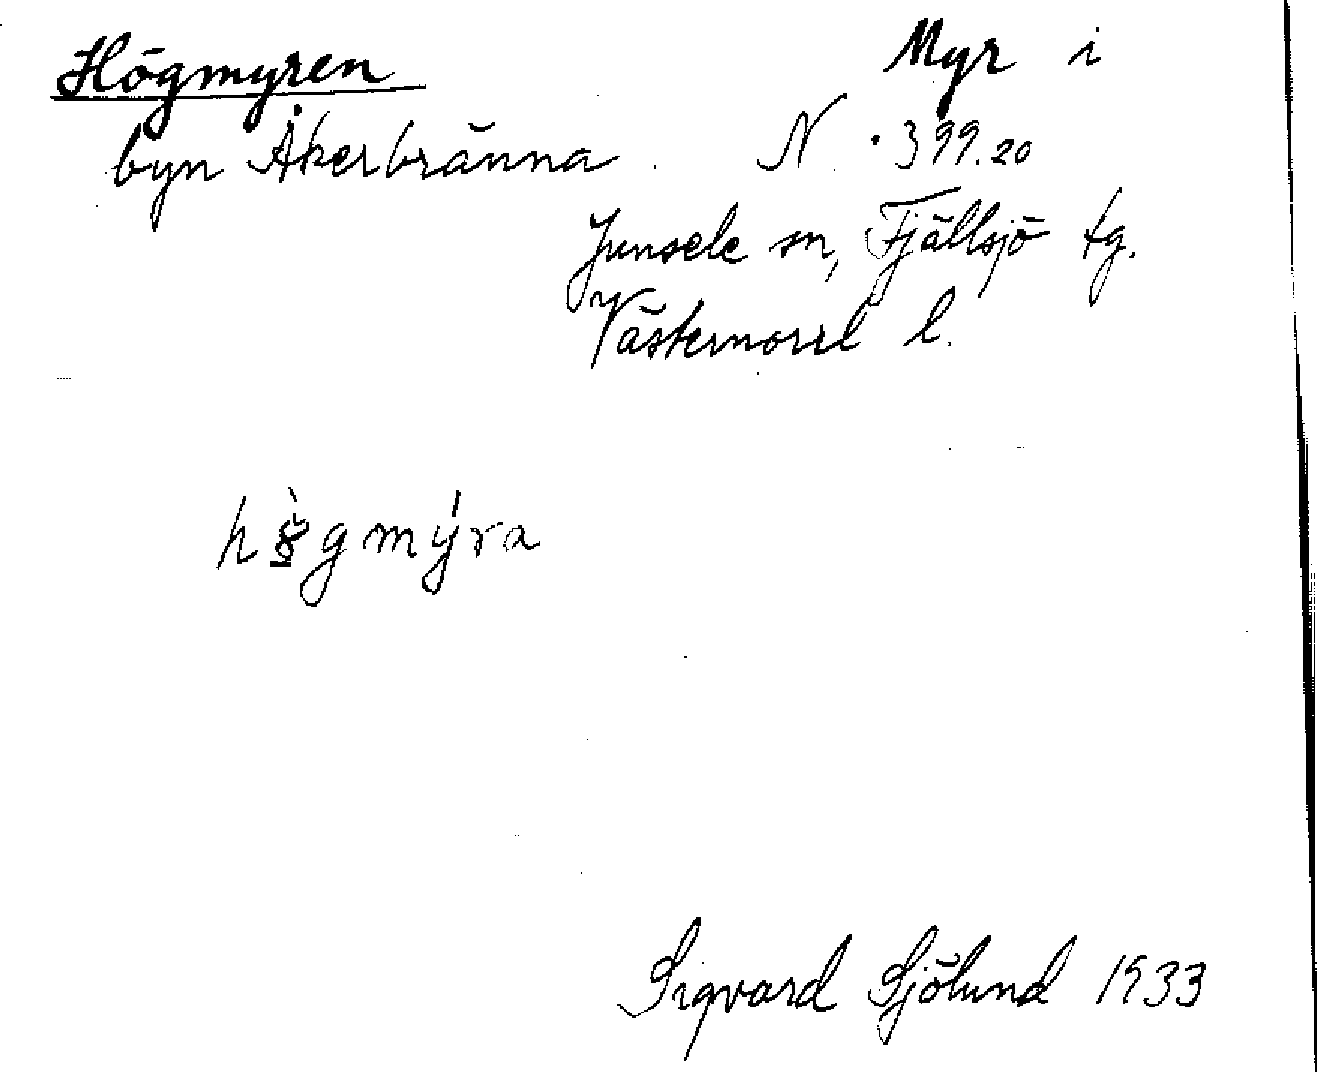 Högmyren Myr i
byn Åkerbränna. N. 399.20
Junsele sn, Fjällsjö tg.
Västernorrl l.
Sigvard Sjölund 1933